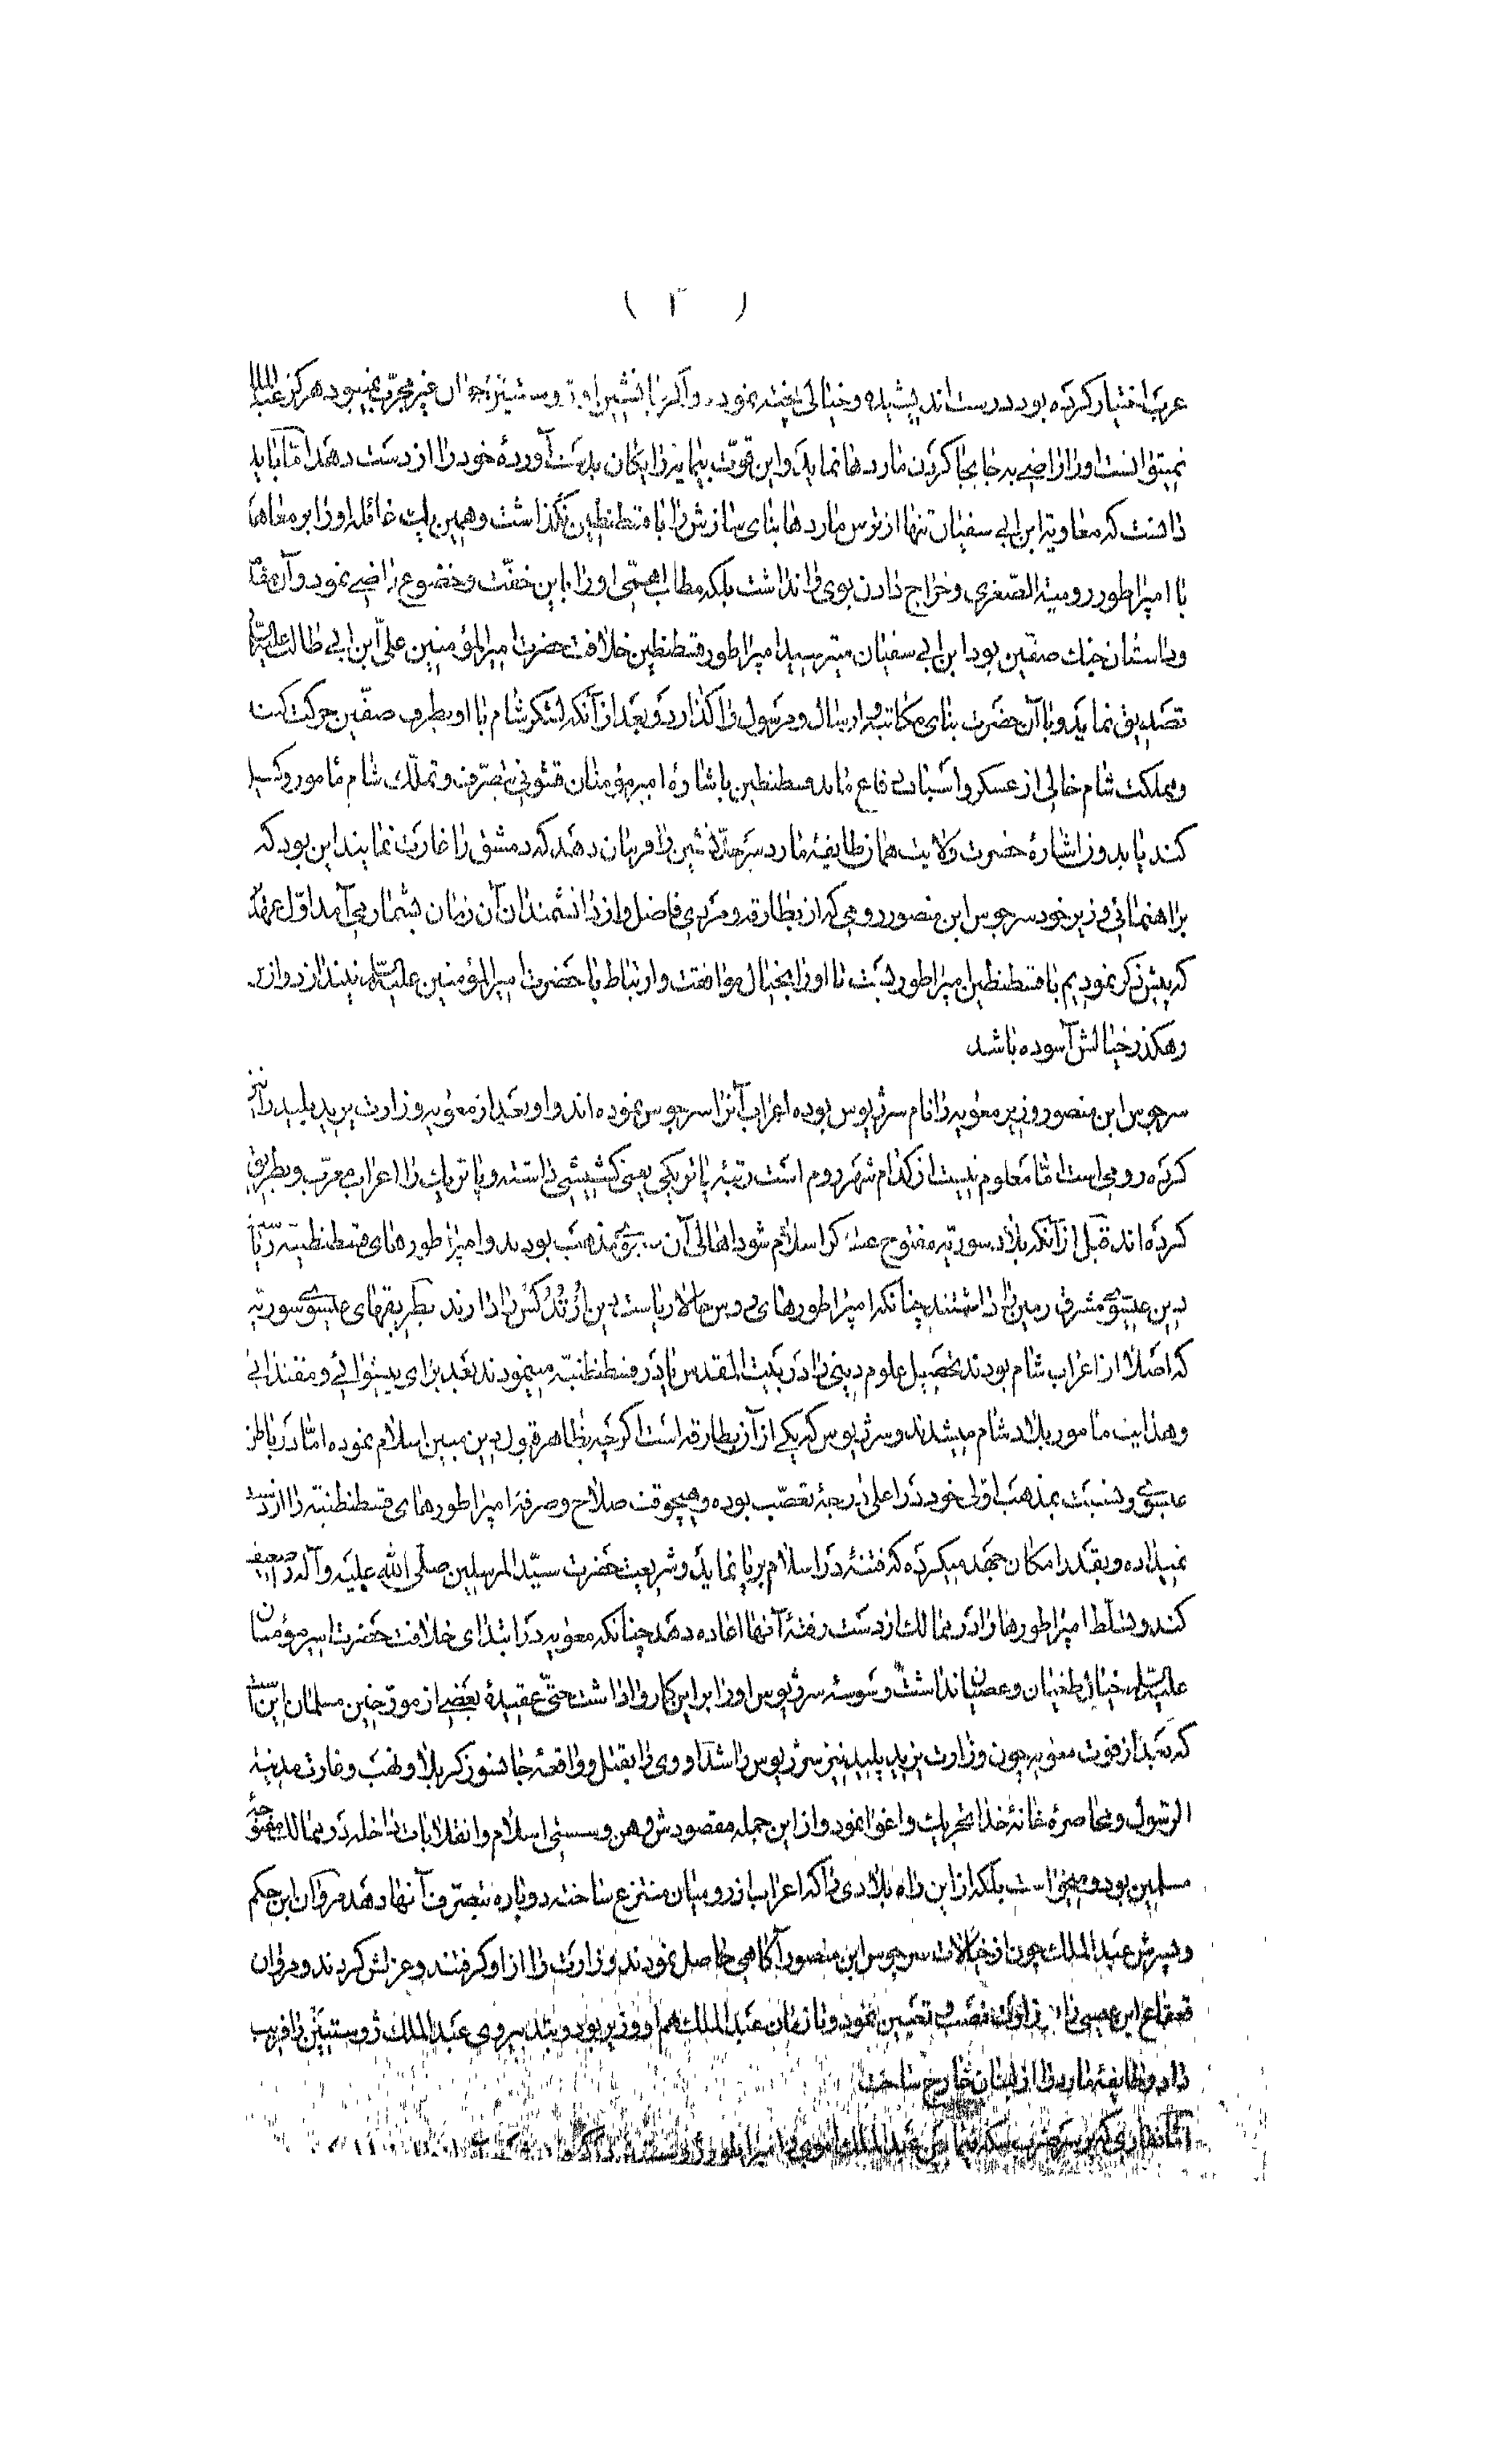 ( ۳ )
عرب اختیار کرده بود درست اندیشیده و خیالی پخته نموده و اگر جانشین او ژوستینین جوان غیر مجرّب نمیبود هرگز عبدالملک
نمیتوانست او را راضی بجابجا کردن مارد ها نماید و این قوّت بیمایه رایگان بدست آوردهٔ خود را از دست دهد امّا باید
دانست که معاویة ابن ابی سفیان تنها از ترس مارد ها بنای سازش را با قسطنطین نگذاشت و همین یک غائله او را بر معاهدهٔ
با امپراطور رومیة الصّغری و خراج دادن بوی وا نداشت بلکه مطالب اهمّی او را باین خفّت و خضوع راضی نمود و آن مقدّمه
و داستان جنك صفّین بود ابن ابی سفیان میترسید امپراطور قسطنطین خلافت حضرت امیرالمؤمنین علیّ ابن ابی طالب علیه السّلام را
تصدیق نماید و با آن حضرت بنای مکاتبه و ارسال و مرسول را گذارد و بعد از آنکه لشکر شام با او بطرف صفّین حرکت کند
و مملکت شام خالی از عسکر و اسباب دفاع ماند قسطنطین باشارهٔ امیر مؤمنان قشونی بتصرّف و تملّك شام مامور و گسیل
کند یا بدون اشارهٔ حضرت ولایت همان طایفهٔ مارد سرحدّ نشین را فرمان دهد که دمشق را غارت نمایند این بود که
براهنمائی وزیر خود سرجوس ابن منصور رومی که از بطارقه و مردی فاضل و از دانشمندان آن زمان بشمار می آمد اوّل عهد
که پیش ذکر نمودیم با قسطنطین امپراطور بست تا او را بخیال موافقت و ارتباط با حضرت امیرالمؤمنین علیه السّلام نیندازد و از
رهگذر خیالش آسوده باشد
سرجوس ابن منصور وزیر معویه را نام سرژیوس بوده اعراب آنرا سرجوس نموده اند و او بعد از معویه وزارت یزید پلید را نیز
کرده رومی است امّا معلوم نیست از کدام شهر روم است رتبهٔ پاتریکی یعنی کشیشی داشته و پاتریك را اعراب معرّب و بطریق
کرده اند قبل از آنکه بلاد سوریّه مفتوح عساکر اسلام شود اهالی آن عیسوی مذهب بودند و امپراطور های قسطنطنیّه ریاست
دین عیسوی مشرق زمین را داشتند چنانکه امپراطورهای روس حالا ریاست دین اُرْتُدُکْس را دارند بطریقهای عیسوی سوریّه
که اصلا از اعراب شام بودند تحصیل علوم دینی را در بیت المقدس یا در قسطنطنیّه مینمودند بعد برای پیشوائی و مقتدائی
و هدایت مامور بلاد شام میشدند و سرژیوس که یکی از آن بطارقه است اگرچه بظاهر قبول دین مبین اسلام نموده امّا در باطن
عیسوی و نسبت بمذهب اوّلی خود در اعلی درجهٔ تعصّب بوده و هیچوقت صلاح و صرفه امپراطورهای قسطنطنیّه را از دست
نمیداده و بقدر امکان جهد میکرده که فتنهٔ در اسلام برپا نماید و شریعت حضرت سیّد المرسلین صلّی الله علیه و آله را ضعیف
کند و تسلّط امپراطورها را در ممالك از دست رفتهٔ آنها اعاده دهد چنانکه معویه در ابتدای خلافت حضرت امیر مؤمنان
علیه السّلام خیال طغیان و عصیان نداشت وسوسهٔ سرژیوس او را بر این کار واداشت حتّی عقیدهٔ بعضی از مورّخین مسلمان این است
که بعد از فوت معویه چون وزارت یزید پلید نیز سرژیوس را شد او وی را بقتل و واقعهٔ جانسوز کربلا و نهب و غارت مدینهٔ
الرّسول و محاصرهٔ خانهٔ خدا تحریك و اغوا نمود و از این جمله مقصودش وهن و سستی اسلام و انقلابات داخله در ممالك مفتوحهٔ
مسلمین بود و میخواست بلکه از این راه بلادی را که اعراب از رومیان منتزع ساخته دوباره بتصرّف آنها دهد مروان ابن حکم
و پسرش عبد الملك چون از خیالات سرجوس ابن منصور آگاهی حاصل نمودند وزارت را از او گرفتند و عزلش کردند و مروان
قعقاع ابن عبسی را بوزارت نصب و تعیین نمود و تا زمان عبد الملك هم او وزیر بود و بتدبیر وی عبد الملك ژوستینین را فریب
داد و طایفهٔ مارد را از لبنان خارج ساخت